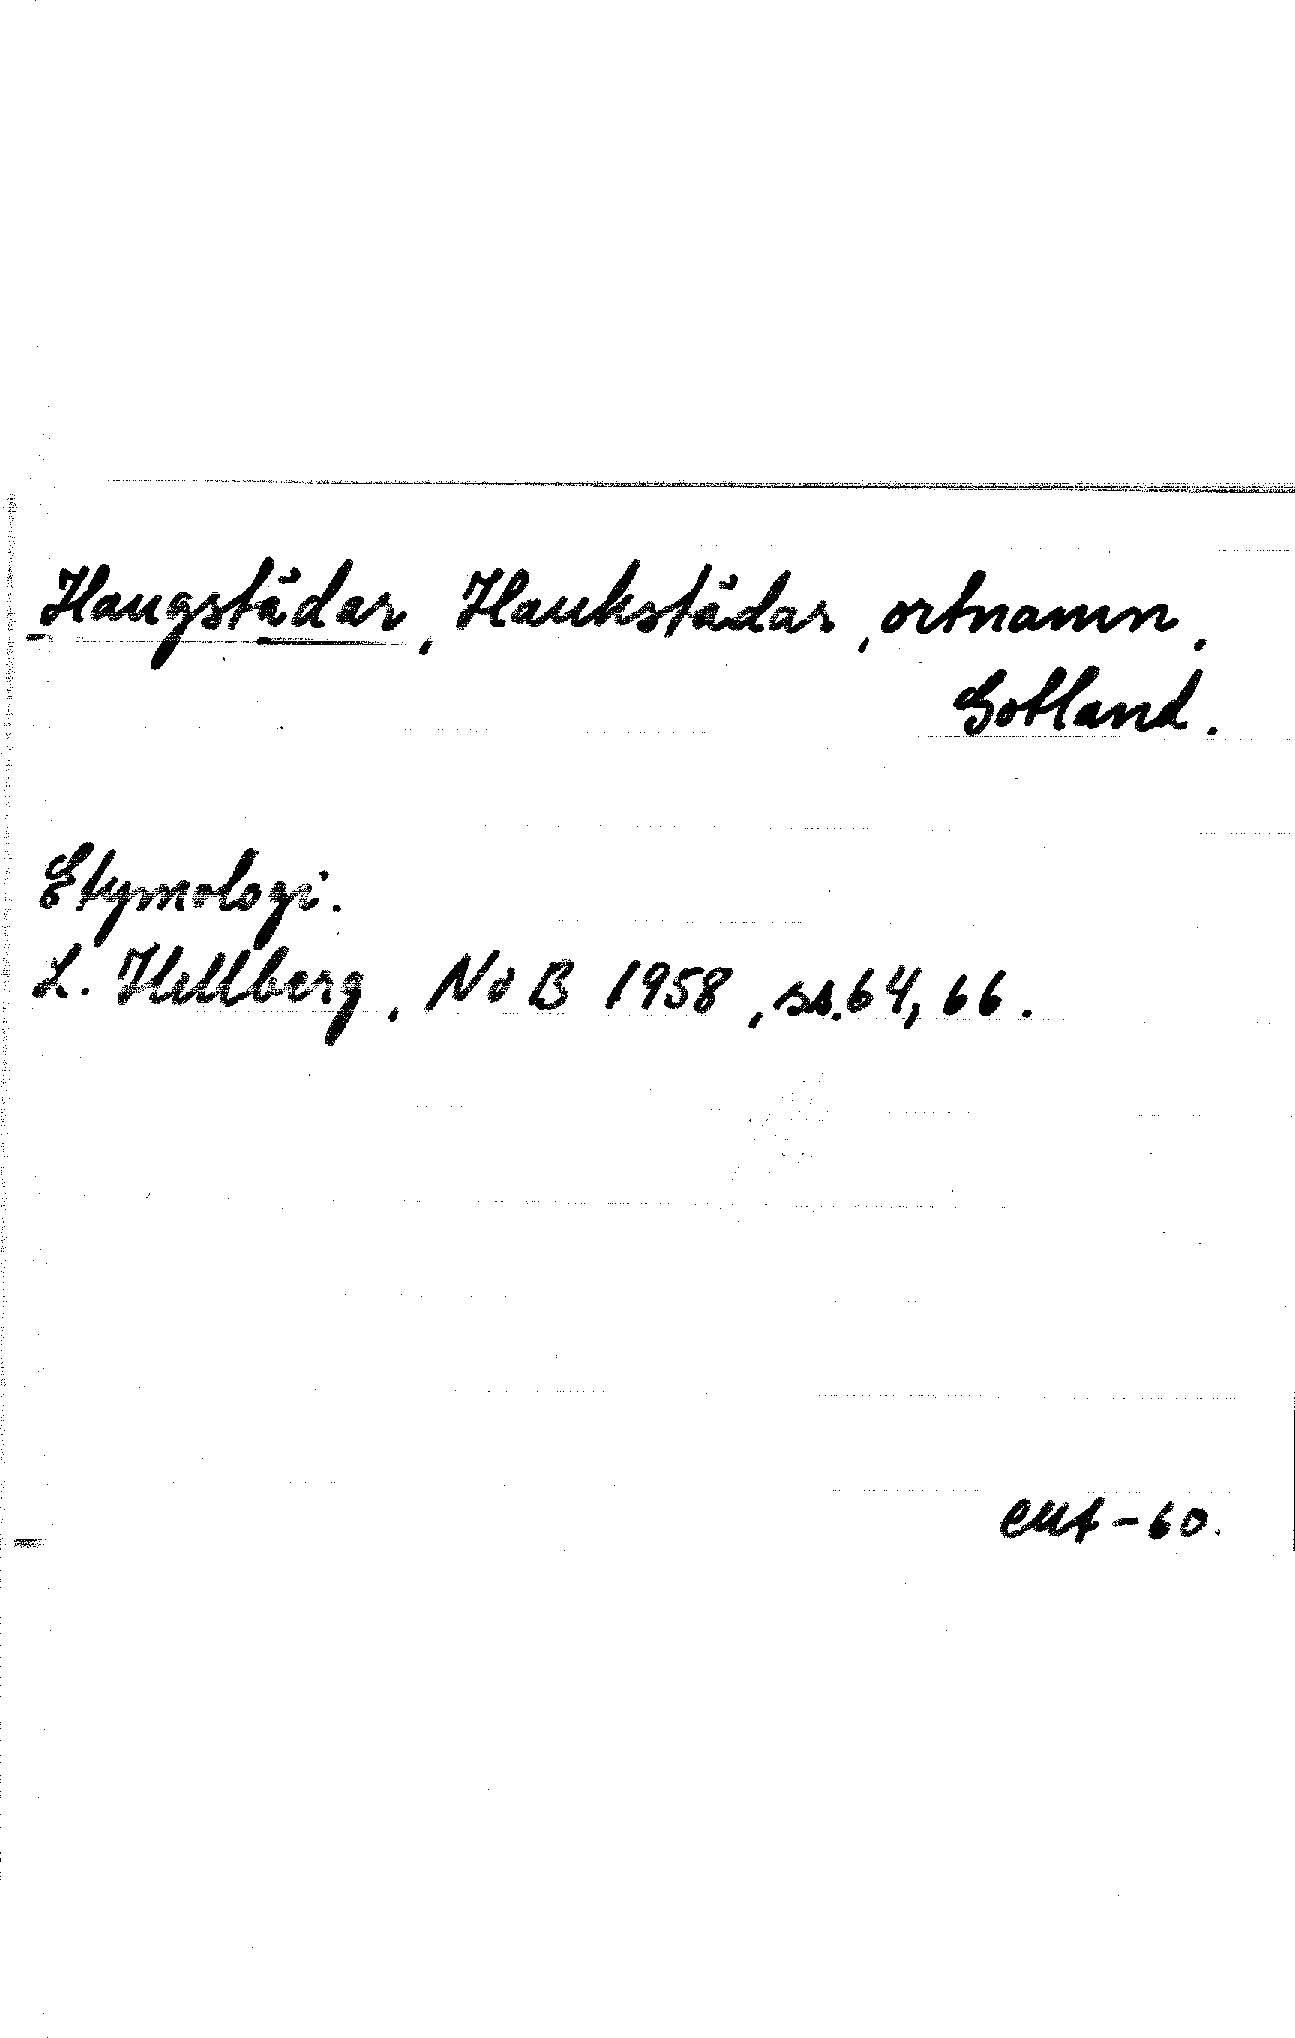 Haugstädar, Haukstädar, ortnamn.
Gotland.
Etymologi.
L. Hellberg, NoB 1958, ss. 64, 66.
EMA-60.